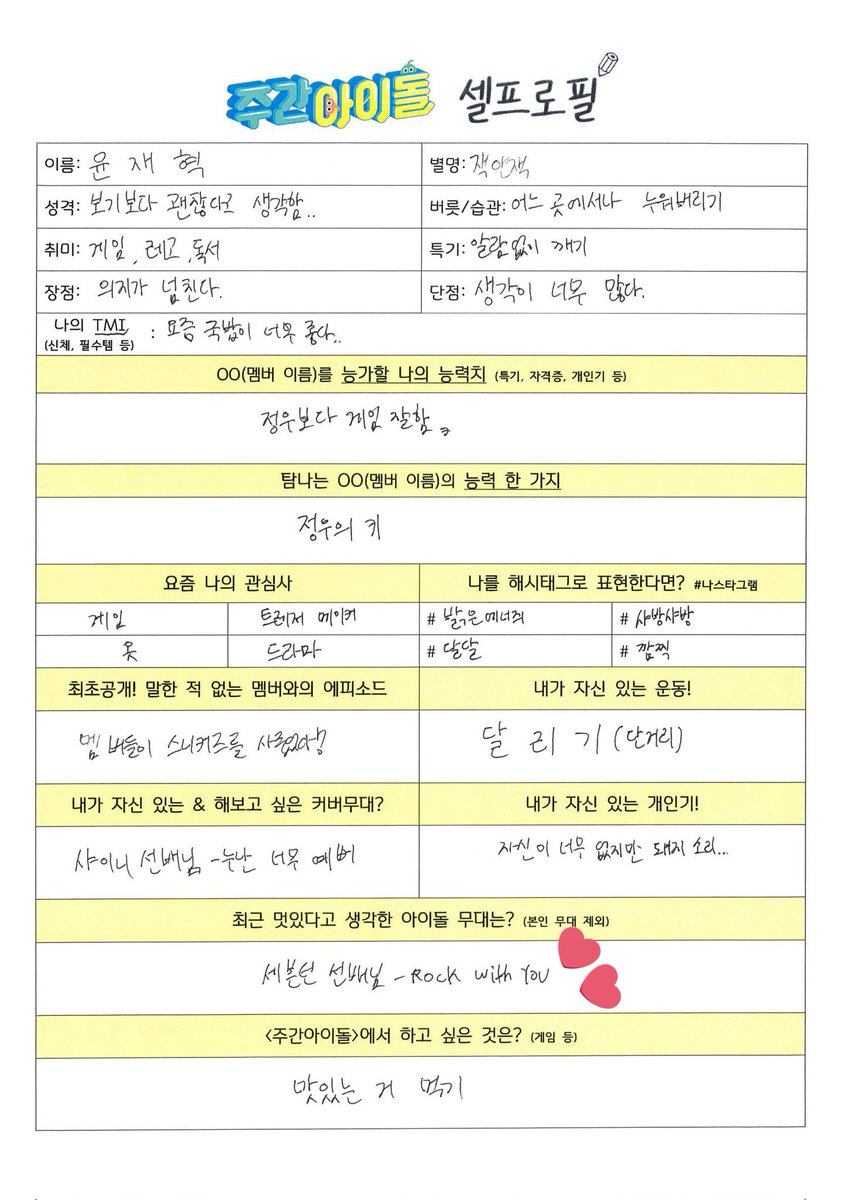 주간아이돌 셀프로필
이름: 윤재혁
별명: 잭안잭
성격: 보기보다 괜찮다고 생각함..
버릇/습관: 어느 곳에서나 누워버리기
취미: 게임, 레고, 독서
특기: 알람없이 깨기
장점: 의지가 넘친다.
단점: 생각이 너무 많다.
나의 TMI : 요즘 국밥이 너무 좋다..
(신체, 필수템 등)
OO(멤버 이름)를 능가할 나의 능력치 (특기, 자격증, 개인기 등)
정우보다 게임 잘함ㅋ
탐나는 OO(멤버 이름)의 능력 한 가지
정우의 키
요즘 나의 관심사
게임
트레저 메이커
옷
드라마
나를 해시태그로 표현한다면? #나스타그램
# 밝은에너쥐
# 샤방샤방
# 달달
# 깜찍
최초공개! 말한 적 없는 멤버와의 에피소드
멤버들이 스니커즈를
내가 자신 있는 운동!
달리기 (단거리)
내가 자신 있는 & 해보고 싶은 커버무대?
샤이니 선배님 - 누난 너무 예뻐
내가 자신 있는 개인기!
자신이 너무 없지만 돼지 소리...
최근 멋있다고 생각한 아이돌 무대는? (본인 무대 제외)
세븐틴 선배님 - Rock with You
<주간아이돌>에서 하고 싶은 것은? (게임 등)
맛있는 거 먹기